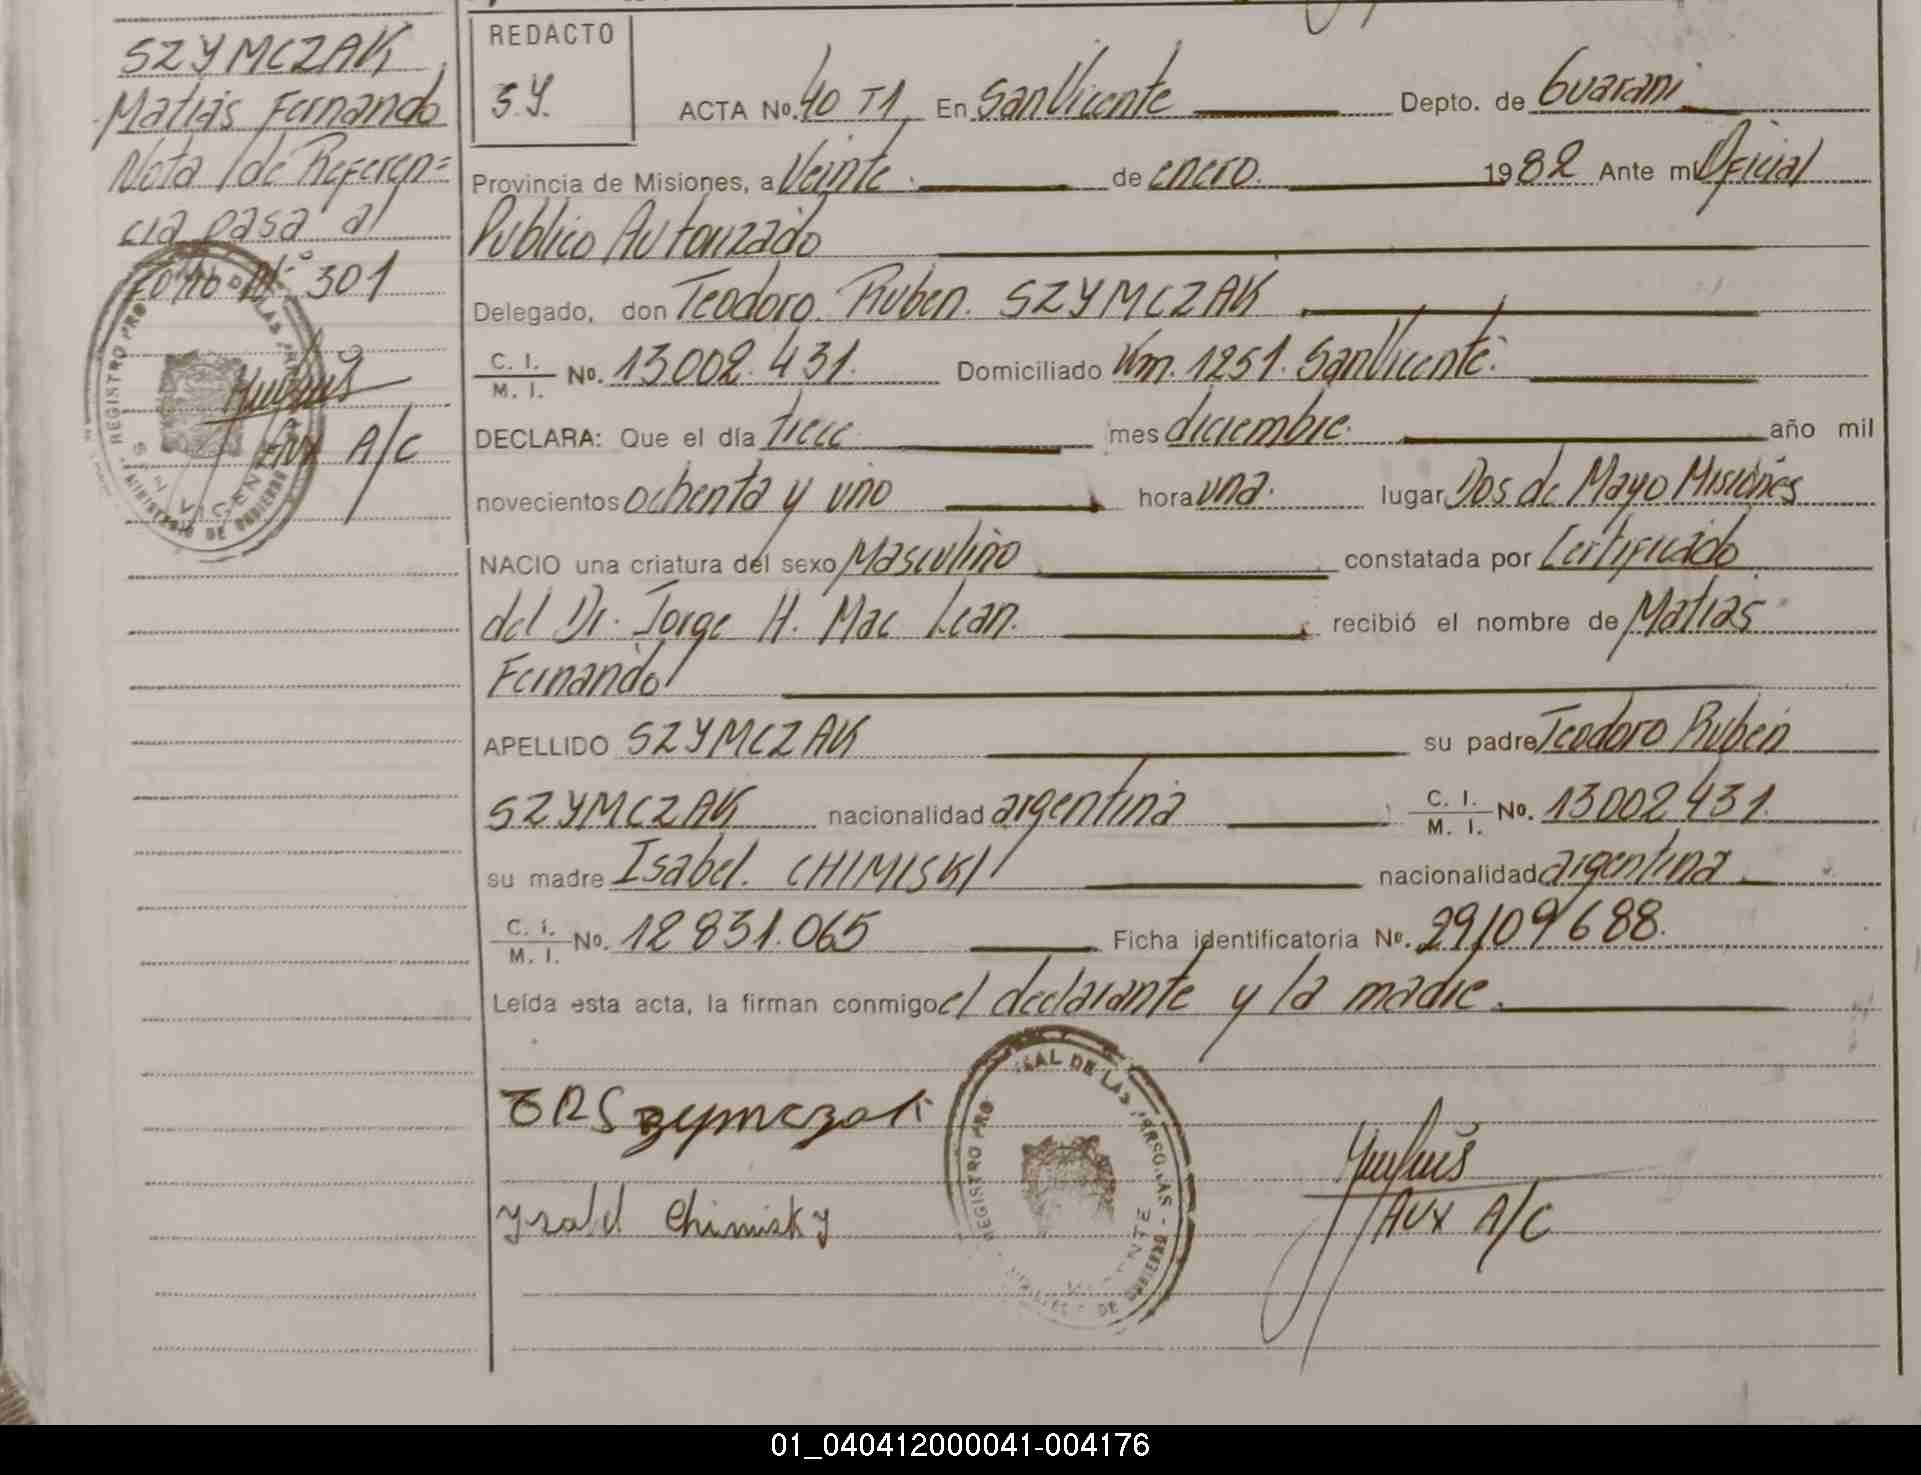 SZYMCZAK
Matias Fernando
Nota de Referen=
cia pasa al
Folio Nº 301
AUX A/C
REDACTO
S.Y.
ACTA No. 40 T1 En San Vicente Depto. de Guarani
Provincia de Misiones, a Veinte. de enero. 1982 Ante mi Oficial
Publico Autorizado
Delegado, don Teodoro Ruben. SZYMCZAK
C. I. / M. I. No. 13002.431. Domiciliado Km. 1251. San Vicente.
DECLARA: Que el día trece mes diciembre. año mil
novecientos ochenta y uno hora una. lugar Dos de Mayo Misiones
NACIO una criatura del sexo Masculino constatada por Certificado
del Dr. Jorge H. Mac Lean. recibió el nombre de Matias
Fernando
APELLIDO SZYMCZAK su padre Teodoro Ruben
SZYMCZAK nacionalidad argentina C. I. / M. I. No. 13002431.
su madre Isabel. CHIMISKI nacionalidad argentina
C. I. / M. I. No. 12831.065 Ficha identificatoria No. 29109688.
Leída esta acta, la firman conmigo el declarante y la madre.
TRSzymczak
Ysabel Chimisky
AUX A/C
01_040412000041-004176